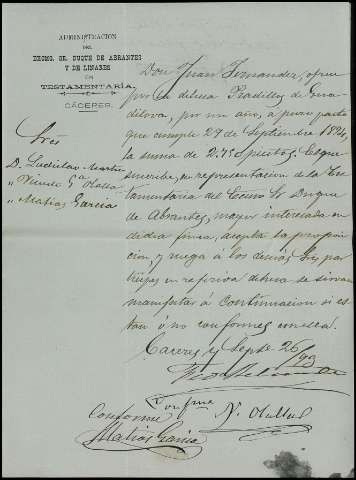 ADMINISTRACION
DEL
EXCMO. SR. DUQUE DE ABRANTES
Y DE LINARES
EN
TESTAMENTARÍA.
CÁCERES.
Don Juan Fernandez, ofrece
por la dehesa Pradillos de
por un año, a puro pasto
que cumple 29 de Septiembre 1894,
la suma de 2.750 pesetas. El que
suscribe, en representacion de la Tes-
tamentaria del Excmo Sr Duque
de Abrantes, mayor interesado en
dicha finca, acepta la proposi-
cion, y ruega á los demás Sres par-
tícipes en referida dehesa se sirvan
manifestar á continuacion si es-
tan ó no conformes en ella.
Caceres y Septe 26/93
Sres
D. Ladislao Martin
" Vicente Ga Olalla
" Matias Garcia
Conforme
Matias Garcia
Conforme
V. Olalla